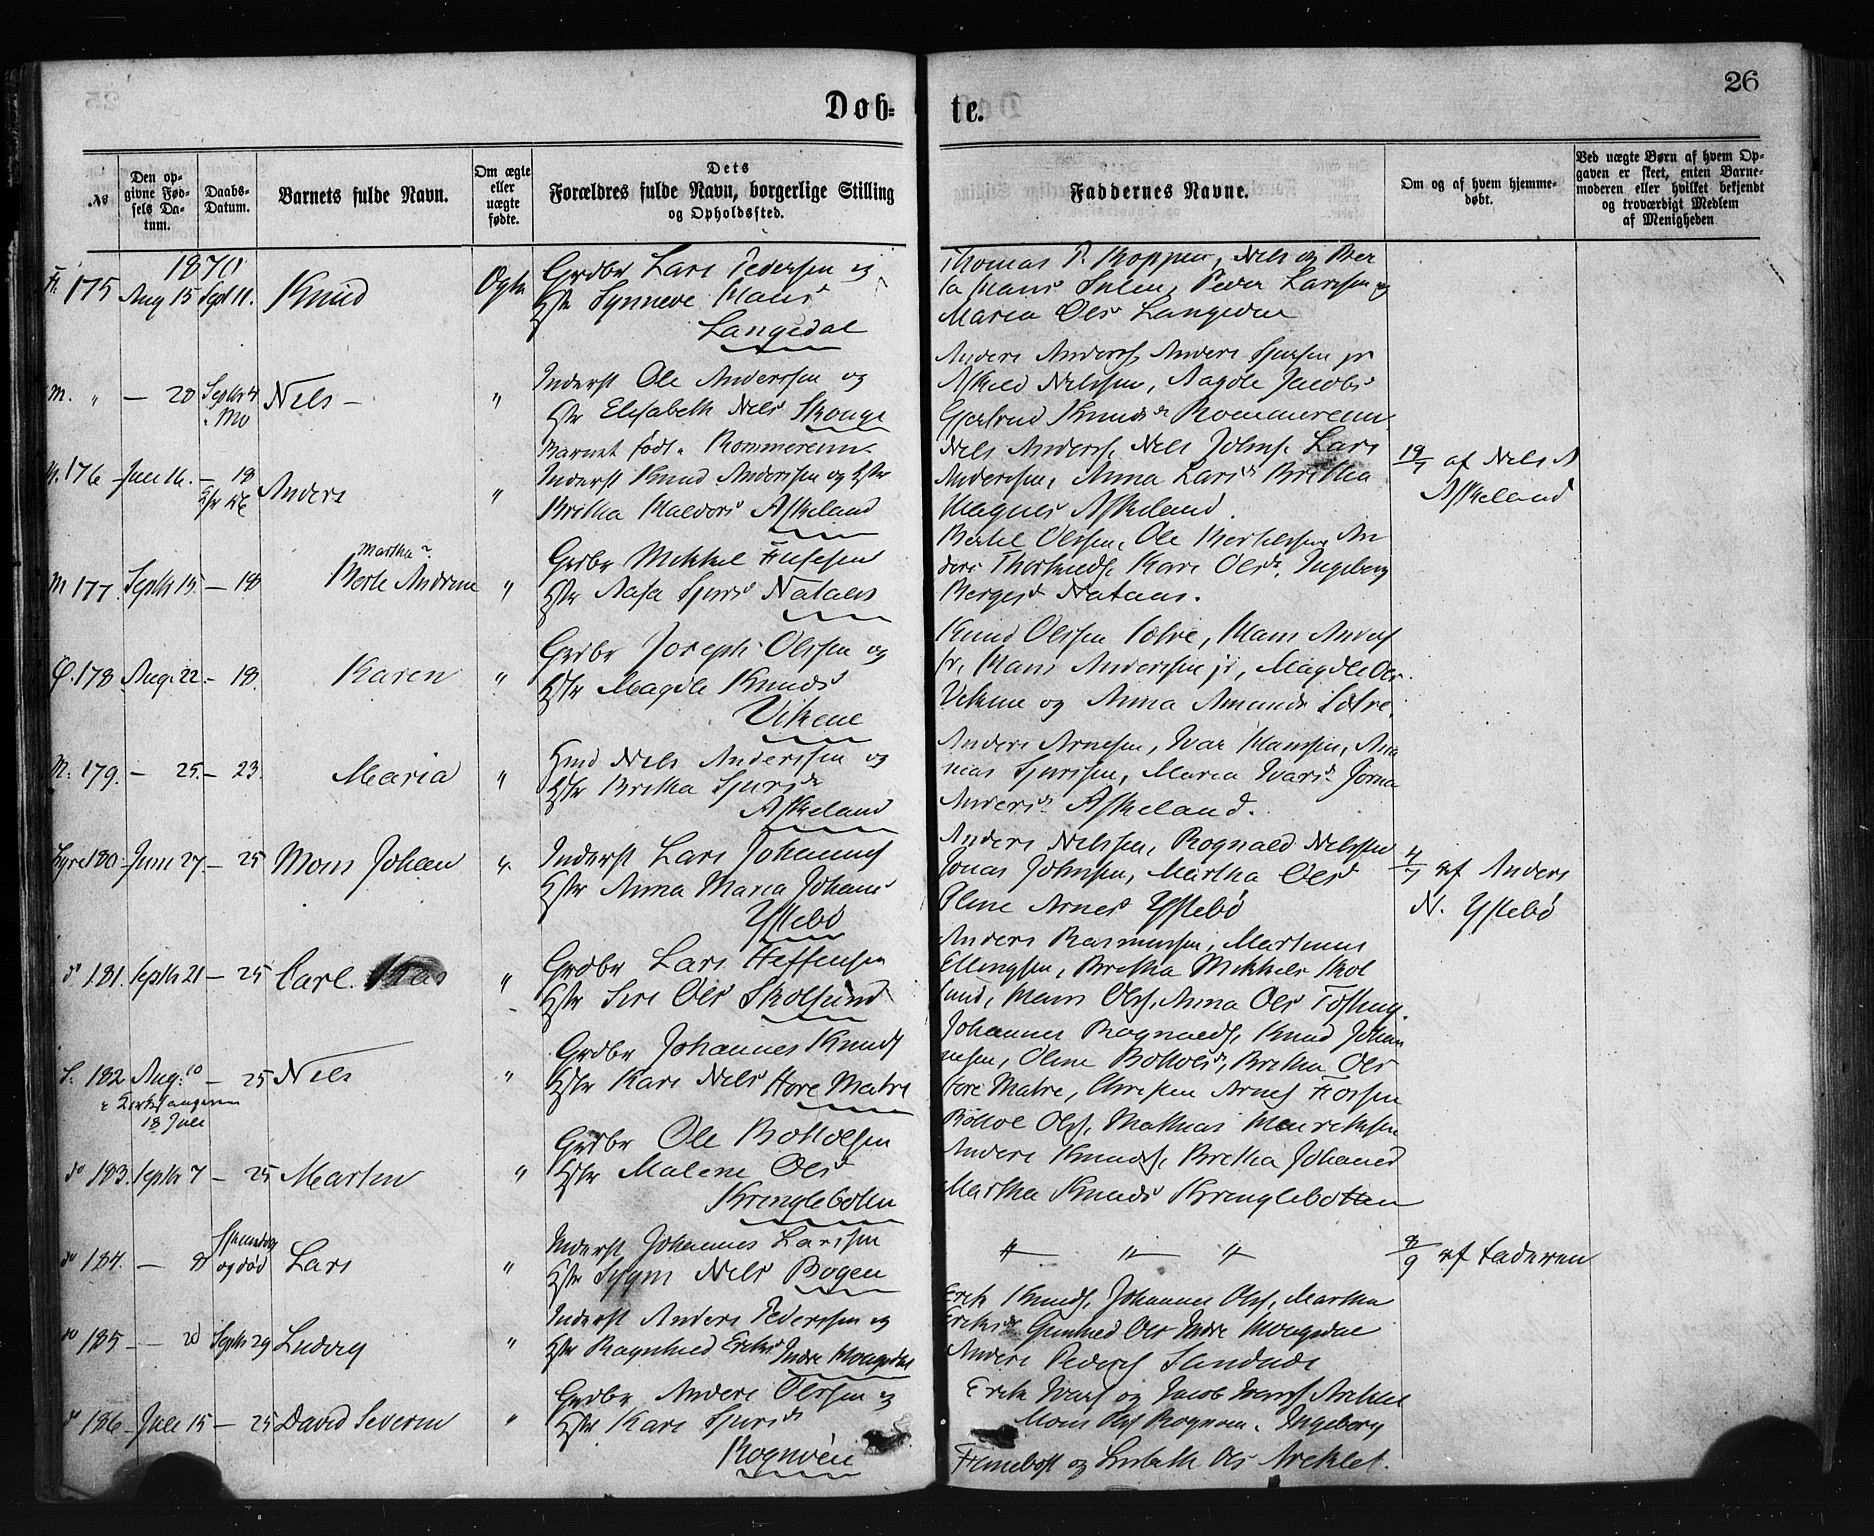 26
Døb-
te.
№
Den op-
givne Fød-
sels Da-
tum.
Daabs-
Datum.
Barnets fulde Navn.
Om ægte
eller
uægte
fødte.
Dets
Forældres fulde Navn, borgerlige Stilling
og Opholdssted.
Faddernes Navne.
Om og af hvem hjemme-
døbt.
Ved uægte Børn af hvem Op-
gaven er skeet, enten Barne-
moderen eller hvilket bekjendt
og troværdigt Medlem
af Menigheden
1870
175 Aug 15 Sept 11. Knud
Grdbr Lars Pedersen og
Hstr Synneve Hans
Langedal
Thomas P. Koppen, Nels og Ber
ta Hans Sulen, Peder Larssen og
Maria Ols Langedal
M. " — 20 Septbr 4 Nels — "
Mo
Inderst Ole Anderssen og
Hstr Elisabeth Nels Skouge
Barnet født Kommerenn
Anders Anders. Anders Sjursen jr
Askild Nelssen, Aagde Jacobs
Gjertrud Knuds Kommerenn
M. 176 Juli 16. — 18 Anders "
Inderst Knud Anderssen og Hstr
Britha Haldors Askeland
Nels Anders. Nels Johns. Lars
Anderssen, Anna Lars Britha
Magnes Askeland.
18/7 af Nels A
Askeland
M 177. Septbr 15. — 18 Berte Andrine "
Martha?
Grdbr Mikkel
Hstr Aasa Sjurs Nataas
Bertel Olssen, Ole Bertelssen, An
ders Ths. Kari Ols. Ingeborg
Berges Nataas.
178 Aug. 22 — 18. Karen "
Grdbr Joseph Olssen og
Hstr Magdle Knuds
Vikene
Knud Olssen Sætre, Hans Anders
sr, Hans Anderssen jr, Magdle Ols
Vikene og Anna Amunds Sætre.
M. 179. — 25. — 23. Maria "
Hmd Nels Anderssen og
Hstr Britha Sjurs
Askeland
Anders Arnesen, Ivar Hanssen, An
nias Sjurssen, Maria Ivars Jorna
Anders Askeland.
180 Juni 27. — 25 Mons Johan "
Inderst Lars Johannes
Hstr Anna Maria Johans
Ystebø
Anders Nelssen, Rognald Nelssen
Jonas Johnsen, Martha Ols
Oline Arnes Ystebø
4/7 af Anders
N. Ystebø
do 181. Septbr 21 — 25 Carl. "
Grdbr Lars Steffensen
Hstr Siri Ols Skolsund
Anders Rasmussen, Martinus
Ellingsen, Britha Mikkels Skol
sund, Hans Ols. Anna Ols
182 Aug. 10 — 25 Nels "
18 Juli
Grdbr Johannes Knuds
Hstr Kari Nels Store Matre
Johannes Rognalds. Knud Johan
nesen, Oline Botolvs, Britha Ols
Store Matre, Christen Arnes
do 183. Septbr 7 — 25 Martin "
Grdbr Ole Botolvsen
Hstr Malene Ols
Kringlebotten
Botolv Ols. Mathias Henriksen
Anders Knuds. Britha Johans
Martha Knuds Kringlebotten
do 184. — 8 og død Lars "
Inderst Johannes Larssen
Hstr Sygni Nels Bogen
" " "
8/9 af Faderen
do 185 — — 20 Septbr 29 Ludvig "
Inderst Anders Pederssen og
Hstr Ragnhild Eriks Indre Haugsdal
Erik Knuds. Johannes Ols. Martha
Eriks Gunhild Ols Indre Haugsdal
Anders Peders
do 186 — Juli 15 — 25 David Severin "
Grdbr Anders Olssen og
Hstr Kari Sjurs
Erik Ivars og Jacob Ivars
Mons Ols Ingeborg
og Lisbeth Ols